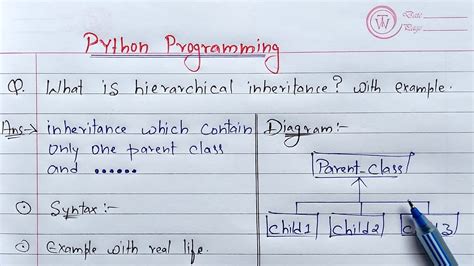 Date
Page
Python Programming
Q. What is hierarchical inheritance? with example.
Ans→ inheritance which contain
only one parent class
and ......
Syntax :-
Example with real life.
Diagram:-
Parent-class
child1 child2 child3